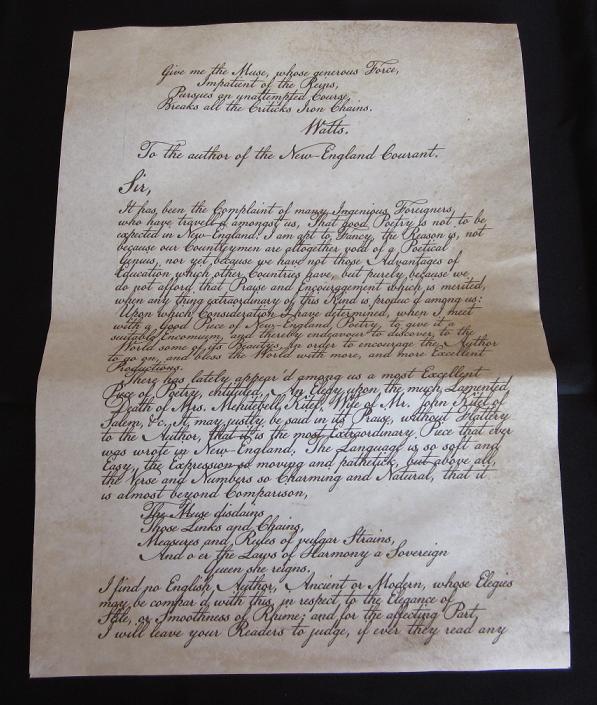 Give me the Muse, whose generous Force,
Impatient of the Reins,
Pursues an unattempted Course,
Breaks all the Criticks Iron Chains.
Watts.
To the author of the New-England Courant.
Sir,
It has been the Complaint of many Ingenious Foreigners,
who have travell'd amongst us, That good Poetry is not to be
expected in New-England. I am apt to Fancy, the Reason is, not
because our Countrymen are altogether void of a Poetical
Genius, nor yet because we have not those Advantages of
Education which other Countries have, but purely because we
do not afford that Praise and Encouragement which is merited,
when any thing extraordinary of this Kind is produc'd among us:
Upon which Consideration I have determined, when I meet
with a Good Piece of New-England Poetry, to give it a
suitable Encomium, and thereby endeavour to discover to the
World some of its Beautys, in order to encourage the Author
to go on, and bless the World with more, and more Excellent
Productions.
There has lately appear'd among us a most Excellent
Piece of Poetry, entituled, An Elegy upon the much Lamented
Death of Mrs. Mehitebell Kitel, Wife of Mr. John Kitel of
Salem, &c. It may justly be said in its Praise, without Flattery
to the Author, that it is the most Extraordinary Piece that ever
was wrote in New-England. The Language is so soft and
Easy, the Expression so moving and pathetick, but above all,
the Verse and Numbers so Charming and Natural, that it
is almost beyond Comparison,
The Muse disdains
Those Links and Chains,
Measures and Rules of vulgar Strains,
And o'er the Laws of Harmony a Sovereign
Queen she reigns.
I find no English Author, Ancient or Modern, whose Elegies
may be compar'd with this, in respect to the Elegance of
Stile, or Smoothness of Rhime; and for the affecting Part,
I will leave your Readers to judge, if ever they read any